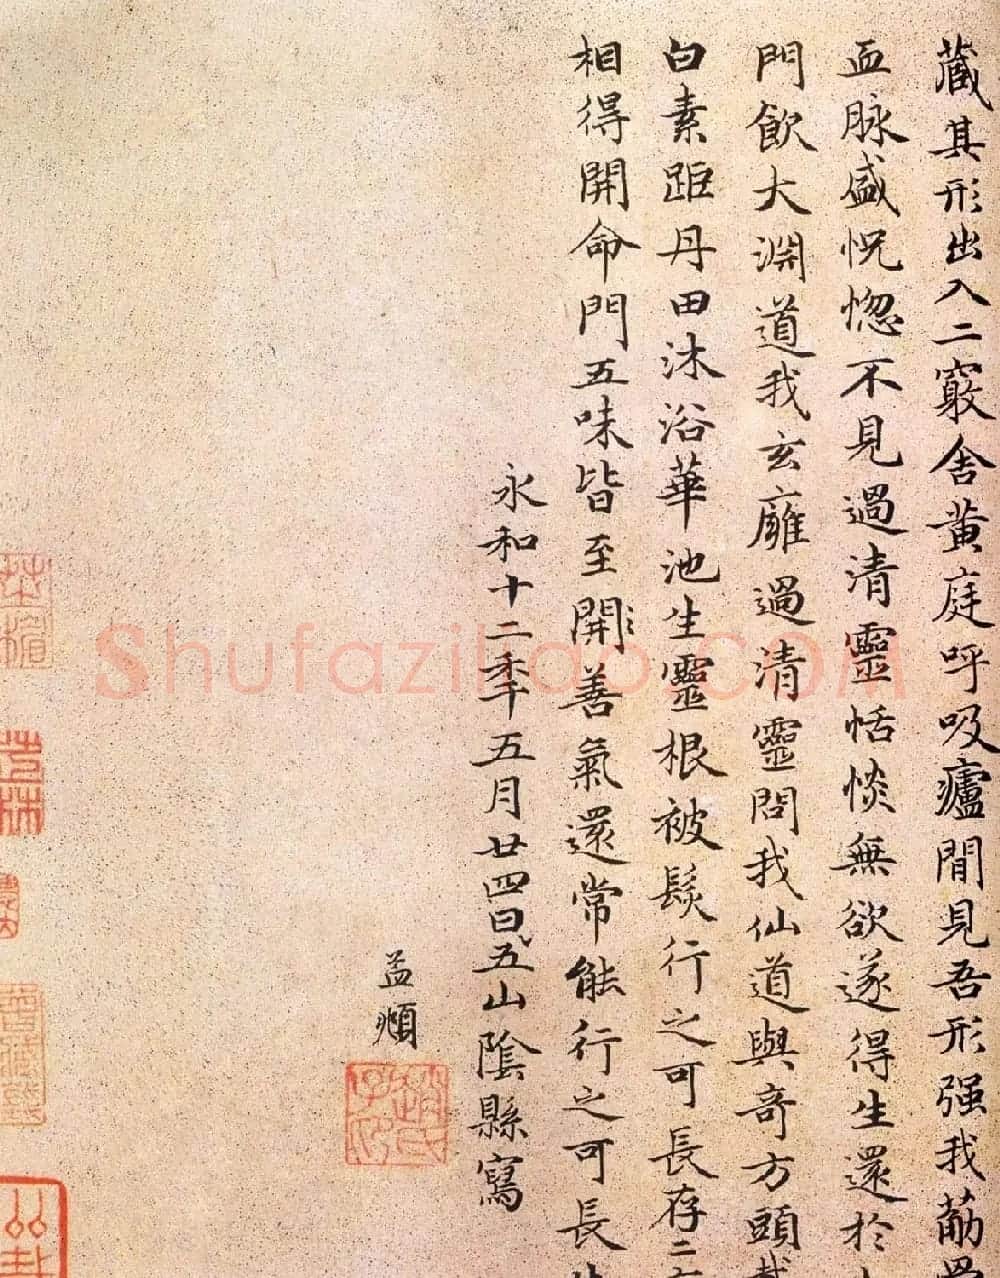 藏其形出入二竅舍黃庭呼吸廬閒見吾形强我筋骨
血脉盛怳惚不見過清靈恬惔無欲遂得生還於
門飲大淵道我玄廱過清靈問我仙道與奇方頭載
白素距丹田沐浴華池生靈根被髮行之可長存二
相得開命門五味皆至開善氣還常能行之可長生
永和十二年五月廿四日五山陰縣寫
孟頫
趙氏子昂
Shufaziliao.COM